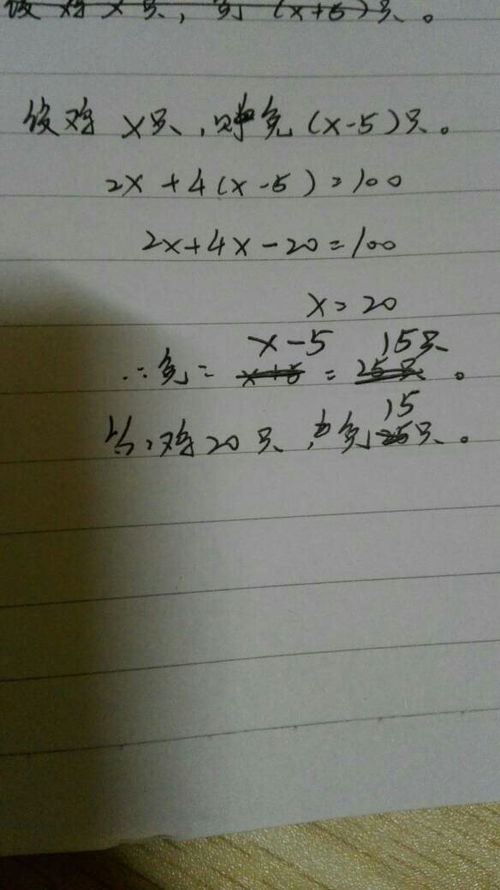 设鸡 x只，兔 (x+5)只。
设鸡 x只，则兔 (x-5)只。
2x + 4(x-5) = 100
2x+4x-20=100
x=20
x-5 15只
∴兔= x+5 = 25只。
15
答：鸡20只，兔25只。